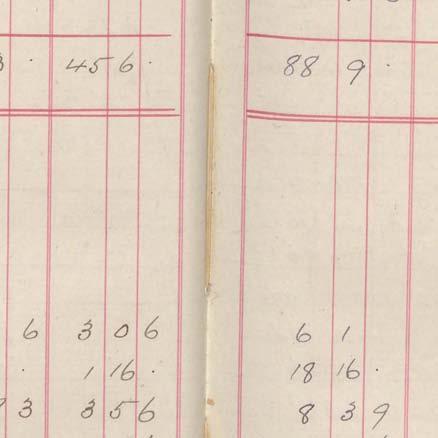 · 45 6 · 88 9 ·
6 3 0 6 6 1
· 1 16 · 18 16 ·
3 3 5 6 8 3 9